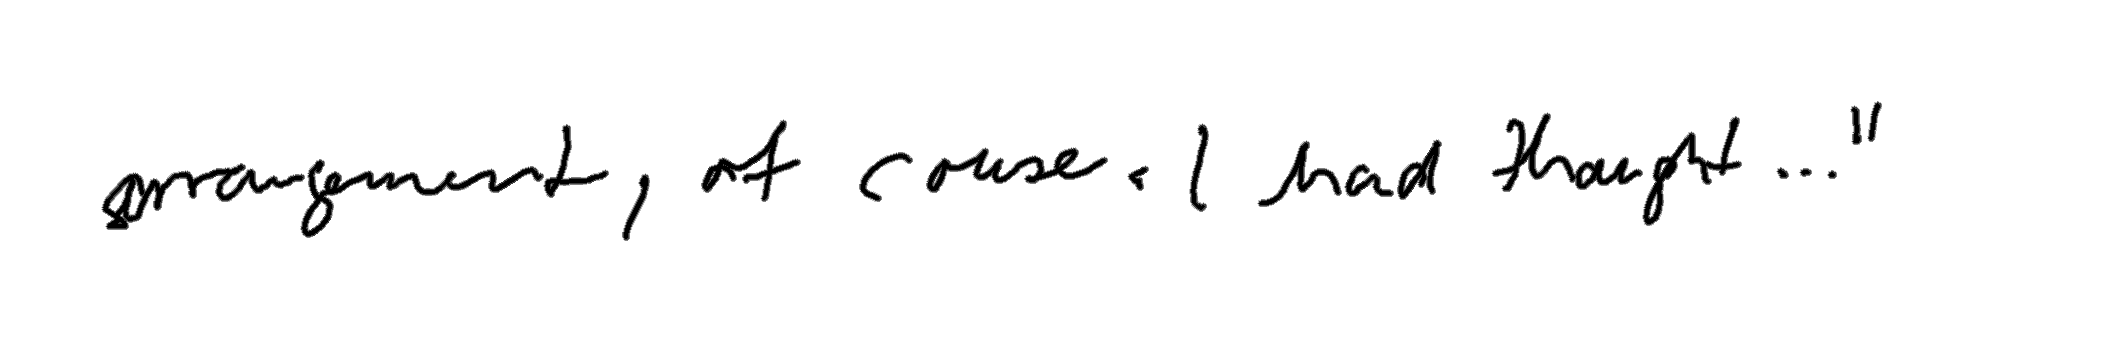 arrangement, of course. I had thought..."